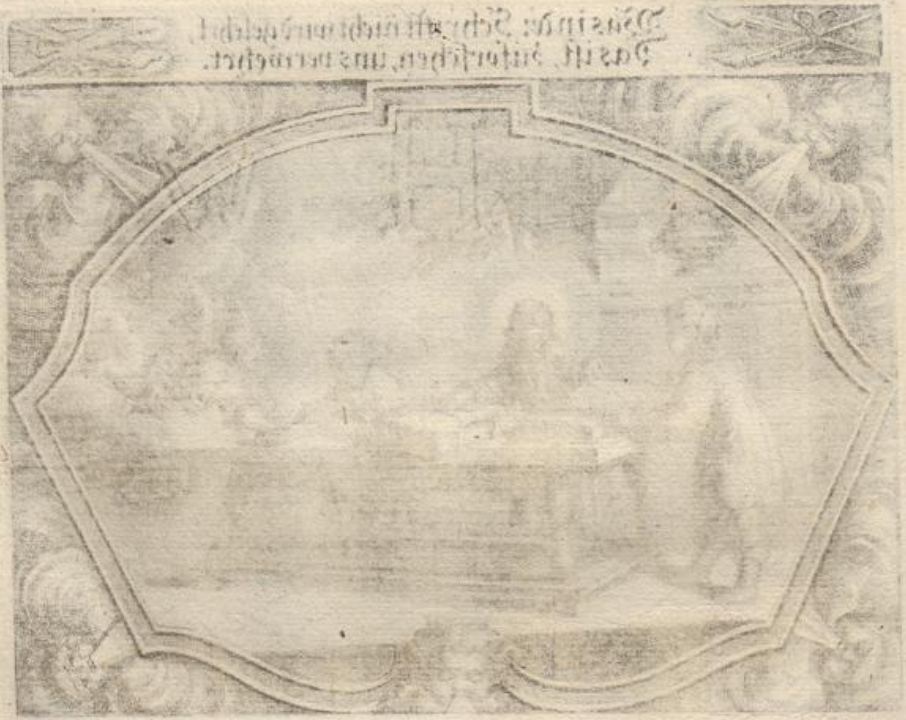 Was in der Schrifft nicht würd gelehrt,
Das ist, zuforschen, uns verwehrt.